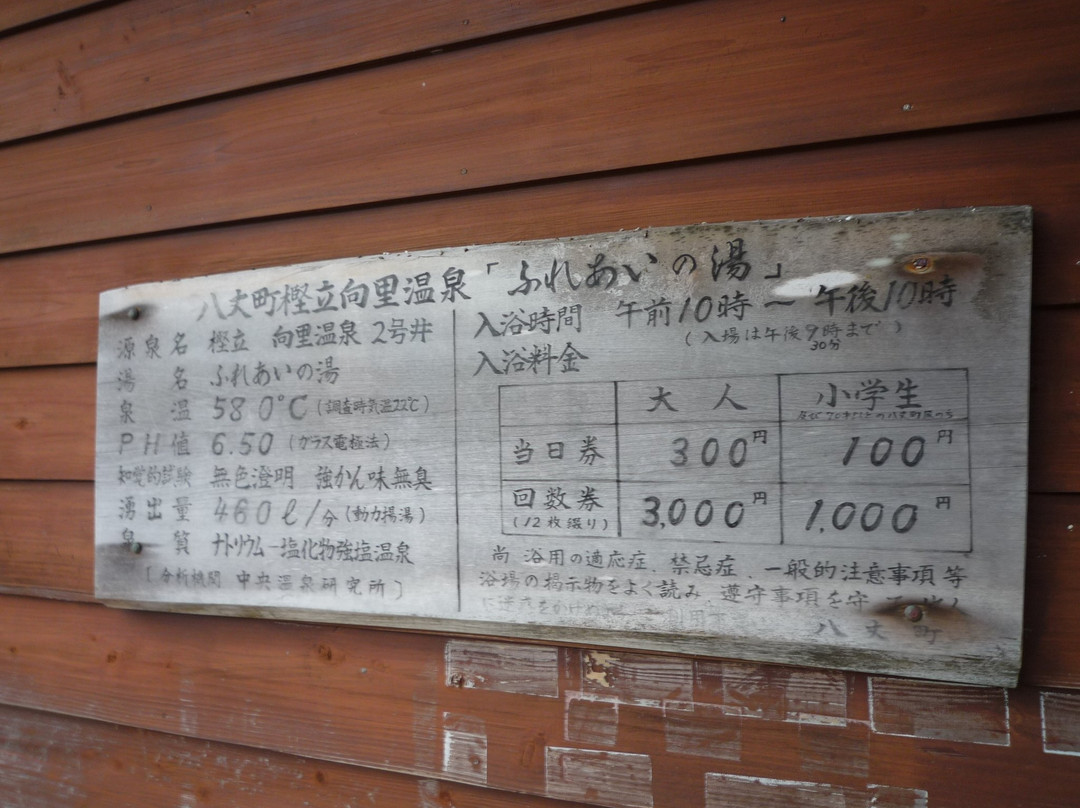 八丈町樫立向里温泉「ふれあいの湯」
源泉名 樫立 向里温泉 2号井
湯名 ふれあいの湯
泉温 58.0℃(調査時気温22℃)
PH値 6.50 (ガラス電極法)
知覚的試験 無色澄明 強かん味無臭
湧出量 460ℓ/分(動力揚湯)
泉質 ナトリウム-塩化物強塩温泉
[分析機関 中央温泉研究所]
入浴時間 午前10時 ~ 午後10時
(入場は午後9時30分まで)
入浴料金
大人 小学生
当日券 300円 100円
回数券 3,000円 1,000円
(12枚綴り)
尚 浴用の適応症、禁忌症、一般的注意事項等
浴場の掲示物をよく読み 遵守事項を守
八丈町